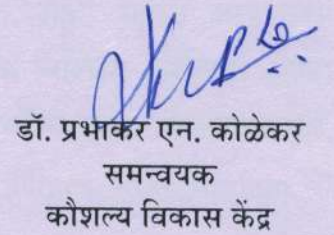 डॉ. प्रभाकर एन. कोळेकर
समन्वयक
कौशल्य विकास केंद्र